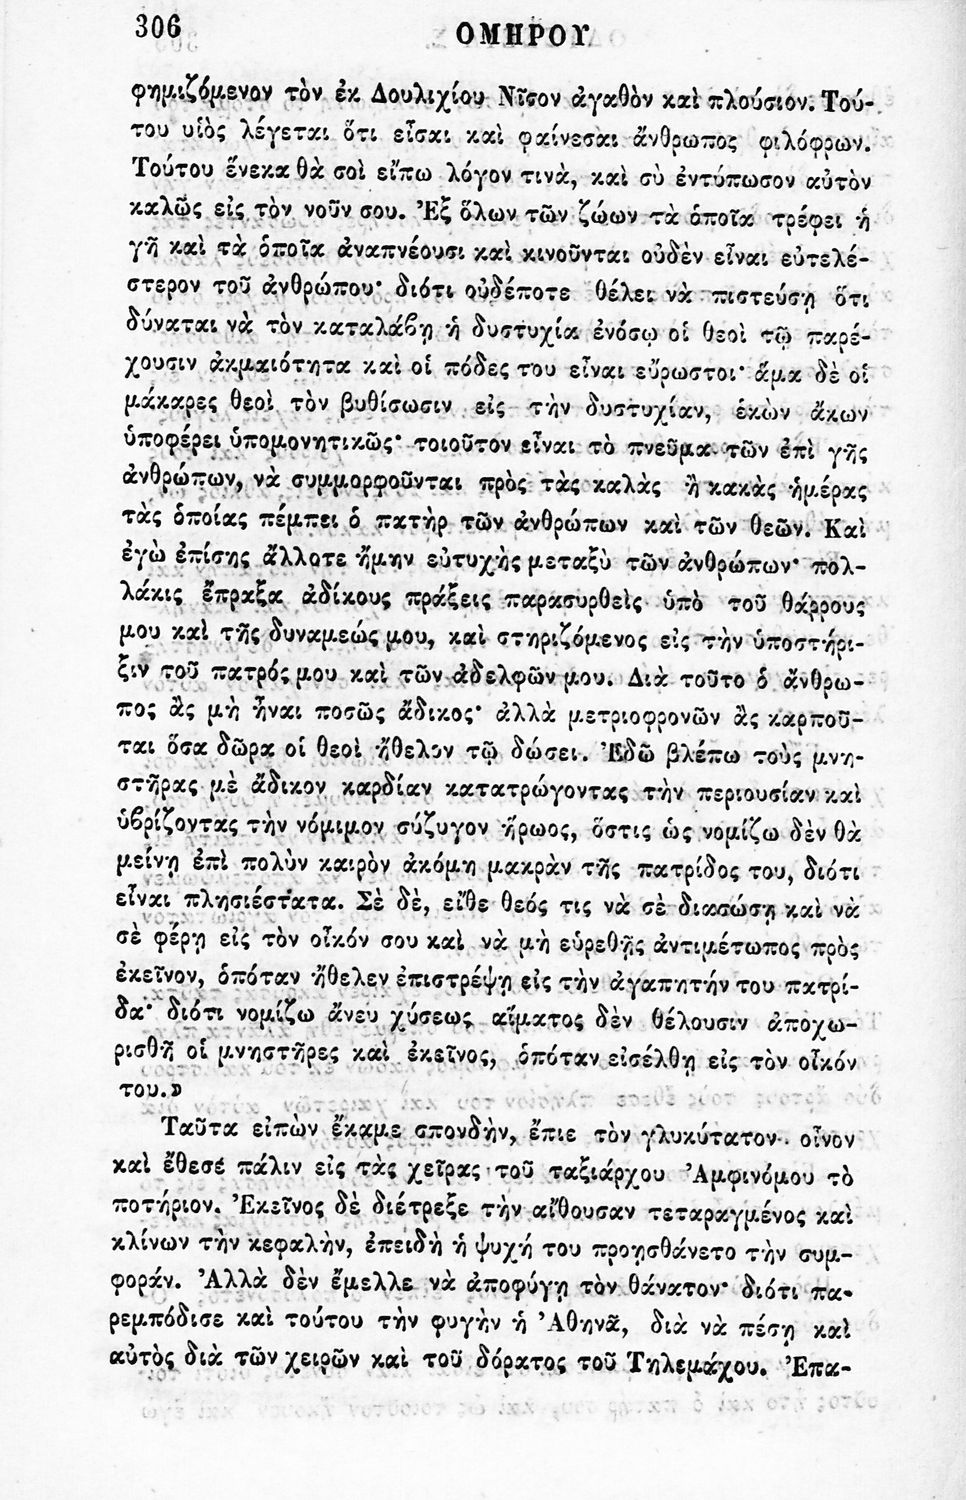 306
ΟΜΗΡΟΥ
φημιζόμενον τὸν ἐκ Δουλιχίου Νῖσον ἀγαθὸν καὶ πλούσιον. Τού-
του υἱὸς λέγεται ὅτι εἶσαι καὶ φαίνεσαι ἄνθρωπος φιλόφρων.
Τούτου ἕνεκα θὰ σοὶ εἴπω λόγον τινὰ, καὶ σὺ ἐντύπωσον αὐτὸν
καλῶς εἰς τὸν νοῦν σου. Ἐξ ὅλων τῶν ζώων τὰ ὁποῖα τρέφει ἡ
γῆ καὶ τὰ ὁποῖα ἀναπνέουσι καὶ κινοῦνται οὐδὲν εἶναι εὐτελέ-
στερον τοῦ ἀνθρώπου· διότι οὐδέποτε θέλει νὰ πιστεύσῃ ὅτι
δύναται νὰ τὸν καταλάβῃ ἡ δυστυχία ἐνόσῳ οἱ θεοὶ τῷ παρέ-
χουσιν ἀκμαιότητα καὶ οἱ πόδες του εἶναι εὔρωστοι· ἅμα δὲ οἱ
μάκαρες θεοὶ τὸν βυθίσωσιν εἰς τὴν δυστυχίαν, ἑκὼν ἄκων
ὑποφέρει ὑπομονητικῶς· τοιοῦτον εἶναι τὸ πνεῦμα τῶν ἐπὶ γῆς
ἀνθρώπων, νὰ συμμορφοῦνται πρὸς τὰς καλὰς ἢ κακὰς ἡμέρας
τὰς ὁποίας πέμπει ὁ πατὴρ τῶν ἀνθρώπων καὶ τῶν θεῶν. Καὶ
ἐγὼ ἐπίσης ἄλλοτε ἤμην εὐτυχὴς μεταξὺ τῶν ἀνθρώπων· πολ-
λάκις ἔπραξα ἀδίκους πράξεις παρασυρθεὶς ὑπὸ τοῦ θάρρους
μου καὶ τῆς δυναμεώς μου, καὶ στηριζόμενος εἰς τὴν ὑποστήρι-
ξιν τοῦ πατρός μου καὶ τῶν ἀδελφῶν μου. Διὰ τοῦτο ὁ ἄνθρω-
πος ἂς μὴ ἦναι ποσῶς ἄδικος· ἀλλὰ μετριοφρονῶν ἂς καρποῦ-
ται ὅσα δῶρα οἱ θεοὶ ἤθελον τῷ δώσει. Ἐδῶ βλέπω τοὺς μνη-
στῆρας μὲ ἄδικον καρδίαν κατατρώγοντας τὴν περιουσίαν καὶ
ὑβρίζοντας τὴν νόμιμον σύζυγον ἥρωος, ὅστις ὡς νομίζω δὲν θὰ
μείνῃ ἐπὶ πολὺν καιρὸν ἀκόμη μακρὰν τῆς πατρίδος του, διότι
εἶναι πλησιέστατα. Σὲ δὲ, εἴθε θεός τις νὰ σὲ διασώσῃ καὶ νὰ
σὲ φέρῃ εἰς τὸν οἶκόν σου καὶ νὰ μὴ εὑρεθῇς ἀντιμέτωπος πρὸς
ἐκεῖνον, ὁπόταν ἤθελεν ἐπιστρέψῃ εἰς τὴν ἀγαπητήν του πατρί-
δα· διότι νομίζω ἄνευ χύσεως αἵματος δὲν θέλουσιν ἀποχω-
ρισθῆ οἱ μνηστῆρες καὶ ἐκεῖνος, ὁπόταν εἰσέλθῃ εἰς τὸν οἶκόν
του.»
Ταῦτα εἰπὼν ἔκαμε σπονδὴν, ἔπιε τὸν γλυκύτατον οἶνον
καὶ ἔθεσε πάλιν εἰς τὰς χεῖρας τοῦ ταξιάρχου Ἀμφινόμου τὸ
ποτήριον. Ἐκεῖνος δὲ διέτρεξε τὴν αἴθουσαν τεταραγμένος καὶ
κλίνων τὴν κεφαλὴν, ἐπειδὴ ἡ ψυχή του προῃσθάνετο τὴν συμ-
φοράν. Ἀλλὰ δὲν ἔμελλε νὰ ἀποφύγῃ τὸν θάνατον· διότι πα-
ρεμπόδισε καὶ τούτου τὴν φυγὴν ἡ Ἀθηνᾶ, διὰ νὰ πέσῃ καὶ
αὐτὸς διὰ τῶν χειρῶν καὶ τοῦ δόρατος τοῦ Τηλεμάχου. Ἐπα-